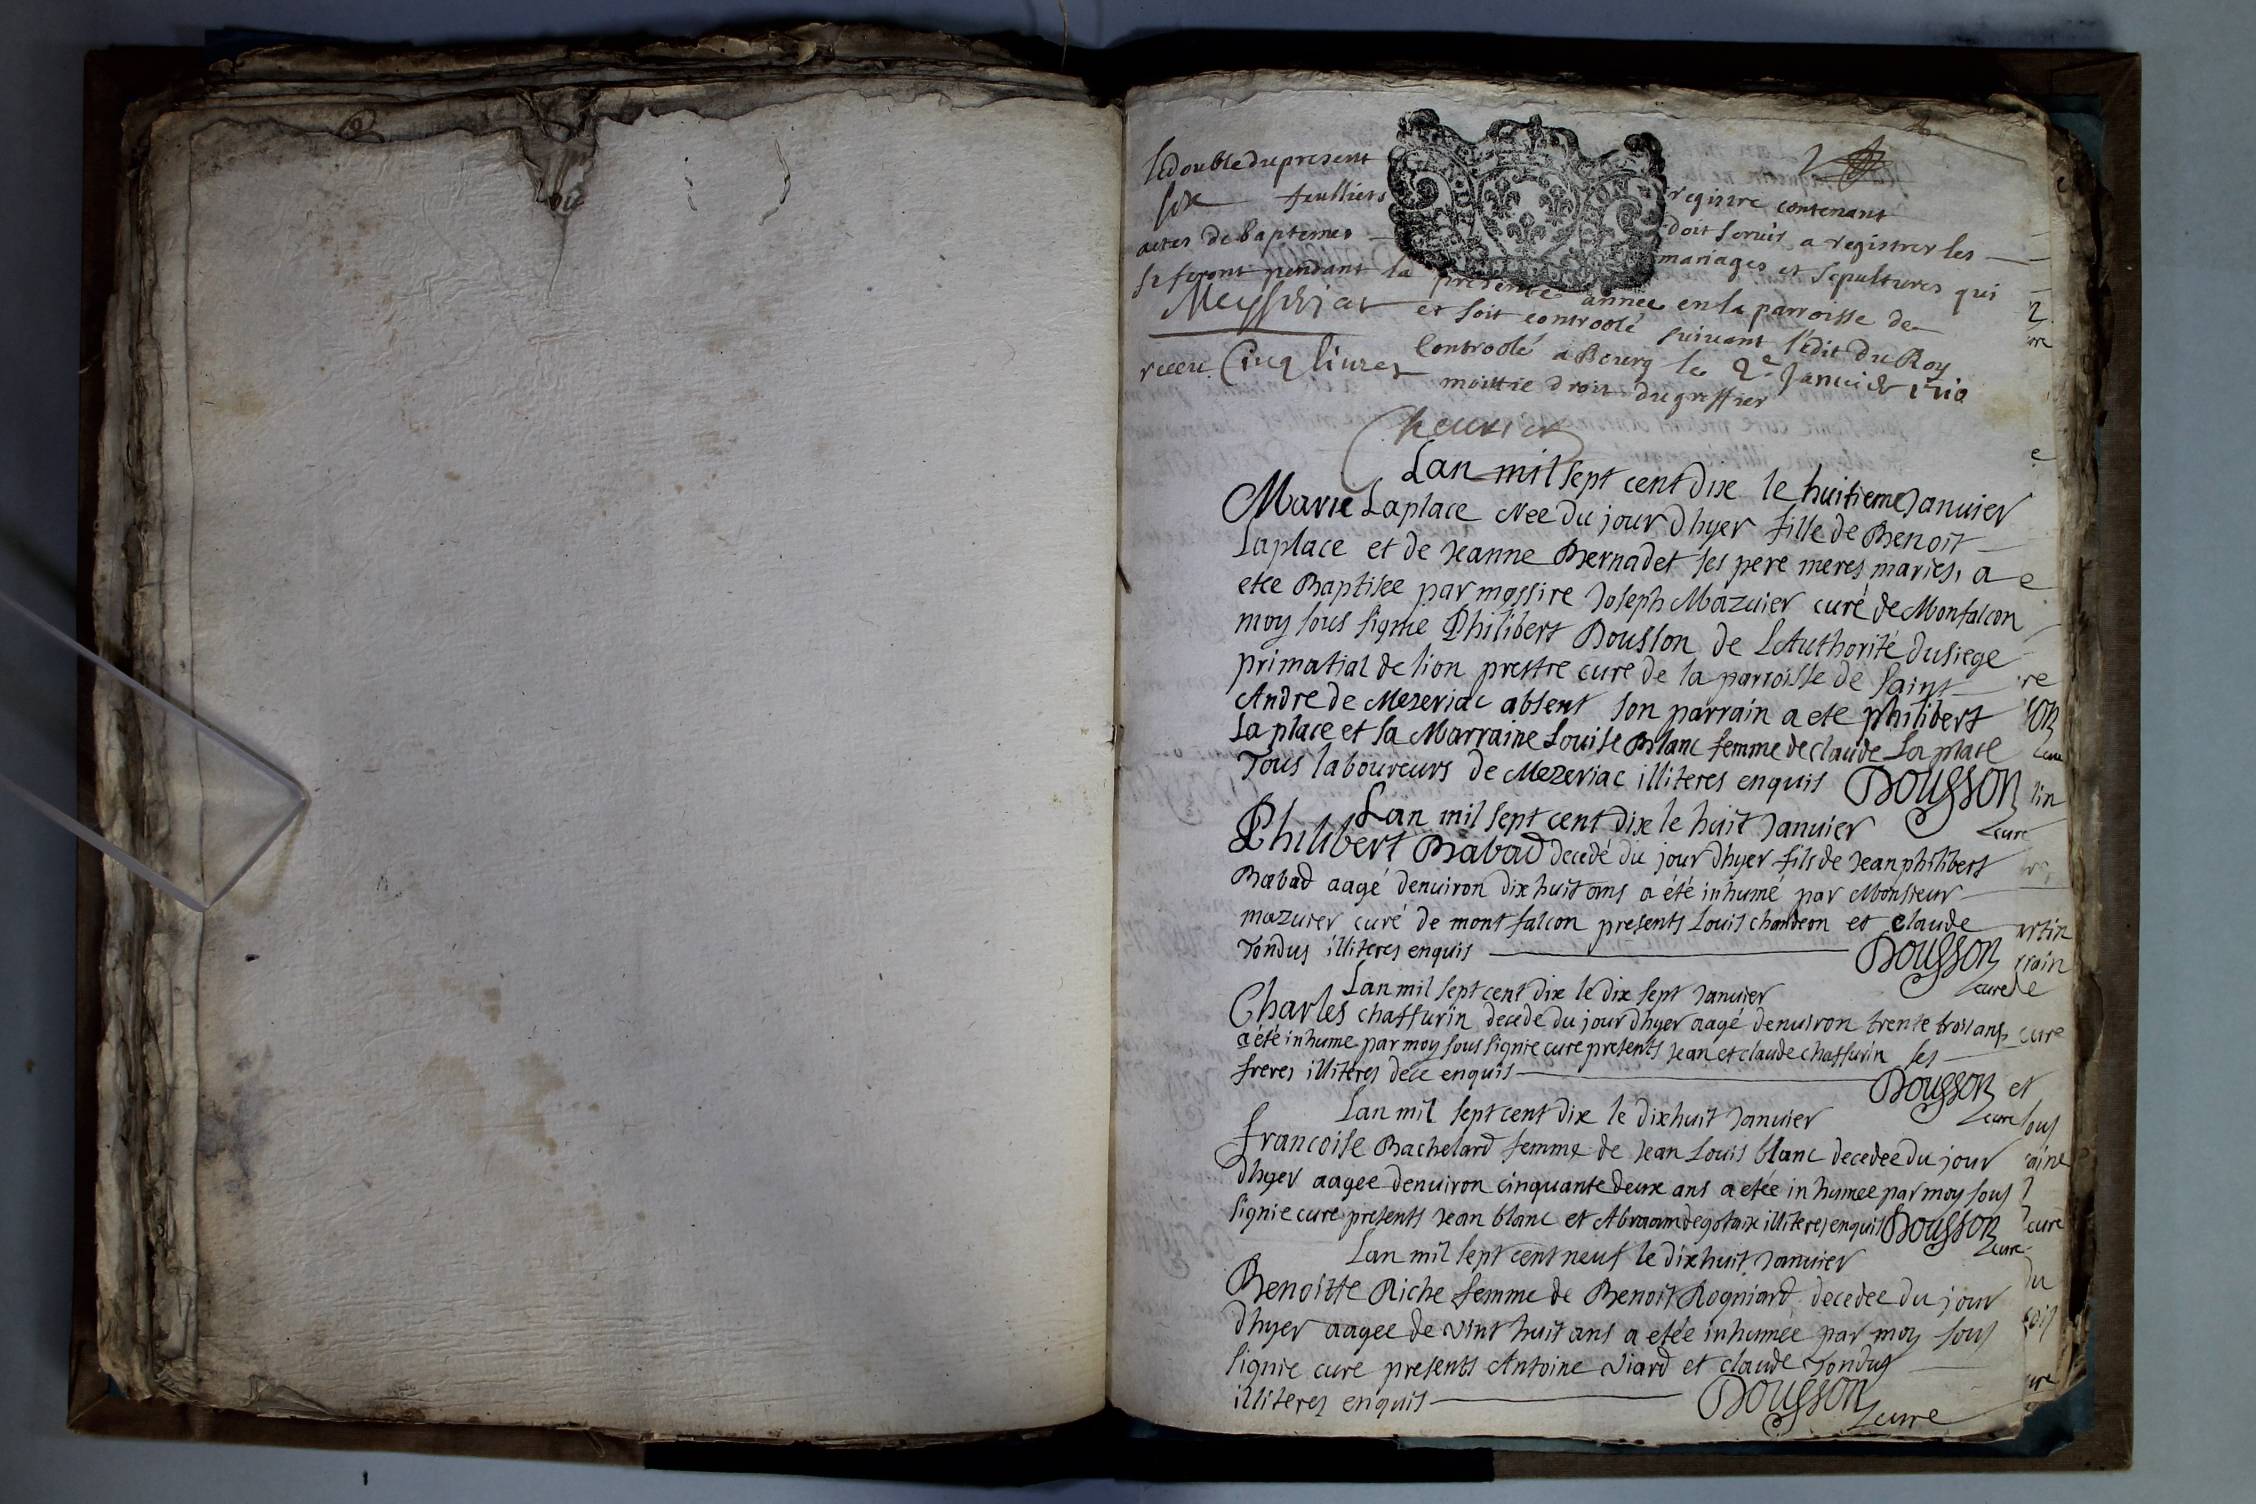 le double du present registre contenant
six feulliers doit servir a registrer les
actes de baptemes mariages et sepultures qui
se feront pendant la presente annee en la parroisse de
et soit controolé suivant l'edit du Roy
Controolé a Bourg le 2e Janvier 1710
receu Cinq livres
moittie droit du greffier
Lan mil sept cent dix le huitieme Janvier
Marie Laplace Nee du jour dhyer fille de Benoit
Laplace et de Jeanne Bernadet ses pere meres maries, a
etee Baptisee par messire Joseph Mazuier curé de Monfalcon
moy sous signie Philibert Dousson de LAuthorité du siege
primatial de lion prestre cure de la parroisse de saint
Andre de Mezeriac absent son parrain a ete philibert
La place et sa Marraine Louise Blanc femme de claude La place
Tous laboureurs de Mezeriac illiteres enquis Dousson
cure
Lan mil sept cent dix le huit Janvier
Philibert Rabad decedé du jour dhyer fils de Jean philibert
Rabad aagé denuiron dix huit ans a été inhumé par Monsieur
mazuier curé de mont falcon presents Louis chandeon et claude
Tondus illiteres enquis Dousson
cure
Lan mil sept cent dix le dix sept Janvier
Charles chaffurin decede du jour dhyer aagé denuiron trente trois ans
a été inhume par moy sous signie cure presents Jean et claude chaffurin ses
freres illiteres dece enquis Dousson
cure
Lan mil sept cent dix le dixhuit Janvier
Francoise Bachelard femme de Jean Louis blanc decedee du jour
dhyer aagee denuiron cinquante deux ans a etee in humee par moy sous
signie cure presents Jean blanc et Abraam degotaix illiteres enquis Dousson
cure
Lan mil sept cent neuf le dixhuit Janvier
Benoitte Riche femme de Benoit Rogniard decedee du jour
dhyer aagee de vint huit ans a etée inhumee par moy sous
signie cure presents Antoine Viard et claude Tondus
illiteres enquis Dousson
cure